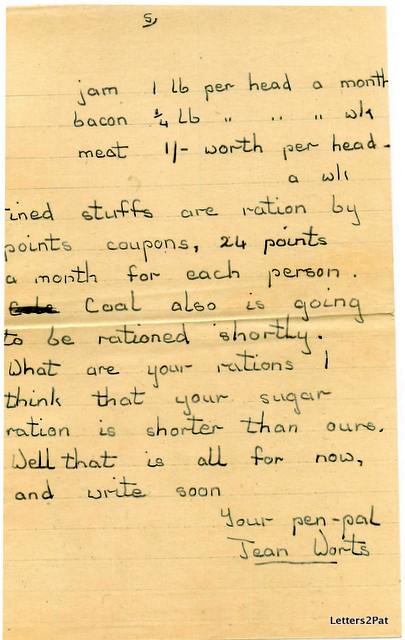 5,
jam 1 lb per head a month
bacon ¼ lb " " " wk
meat 1/- worth per head-
a wk
ined stuffs are ration by
points coupons, 24 points
a month for each person.
Coal also is going
to be rationed shortly.
What are your rations I
think that your sugar
ration is shorter than ours.
Well that is all for now,
and write soon
Your pen-pal
Jean Worts
Letters2Pat